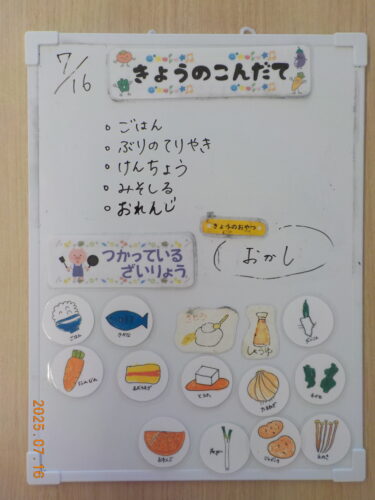 7/16
きょうのこんだて
○ ごはん
○ ぶりのてりやき
○ けんちょう
○ みそしる
○ おれんじ
きょうのおやつ
おかし
つかっている
ざいりょう
ごはん
さかな
しょうゆ
にんじん
とうふ
たまねぎ
おれんじ
2025.07.16